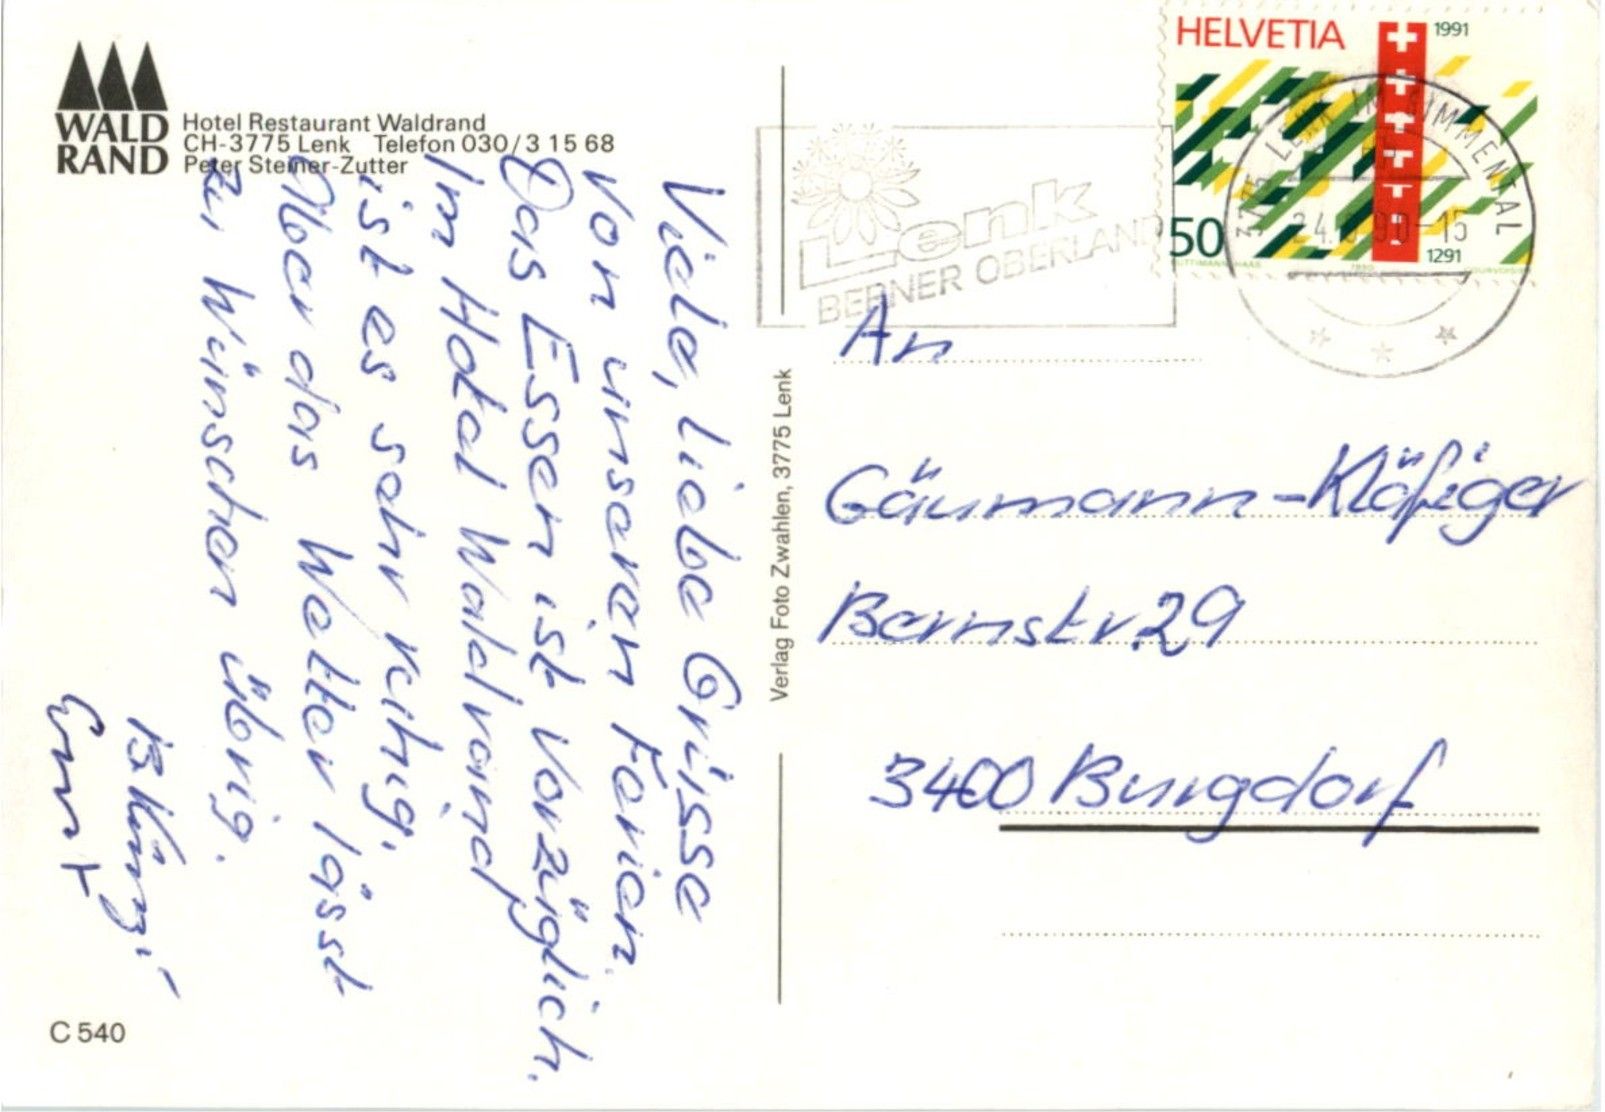 WALD
RAND
Hotel Restaurant Waldrand
CH-3775 Lenk Telefon 030/3 15 68
Peter Steiner-Zutter
Viele, liebe Grüsse
von unseren Ferien.
Das Essen ist vorzüglich.
Im Hotel Waldrand
ist es sehr ruhig.
Aber das Wetter lässt
zu wünschen übrig.
C 540
Verlag Foto Zwahlen, 3775 Lenk
Lenk
BERNER OBERLAND
HELVETIA
1991
50
1291
1990
3775 LENK IM SIMMENTAL
90-15
An
Gäumann-Kläfiger
Bernstr. 29
3400 Burgdorf